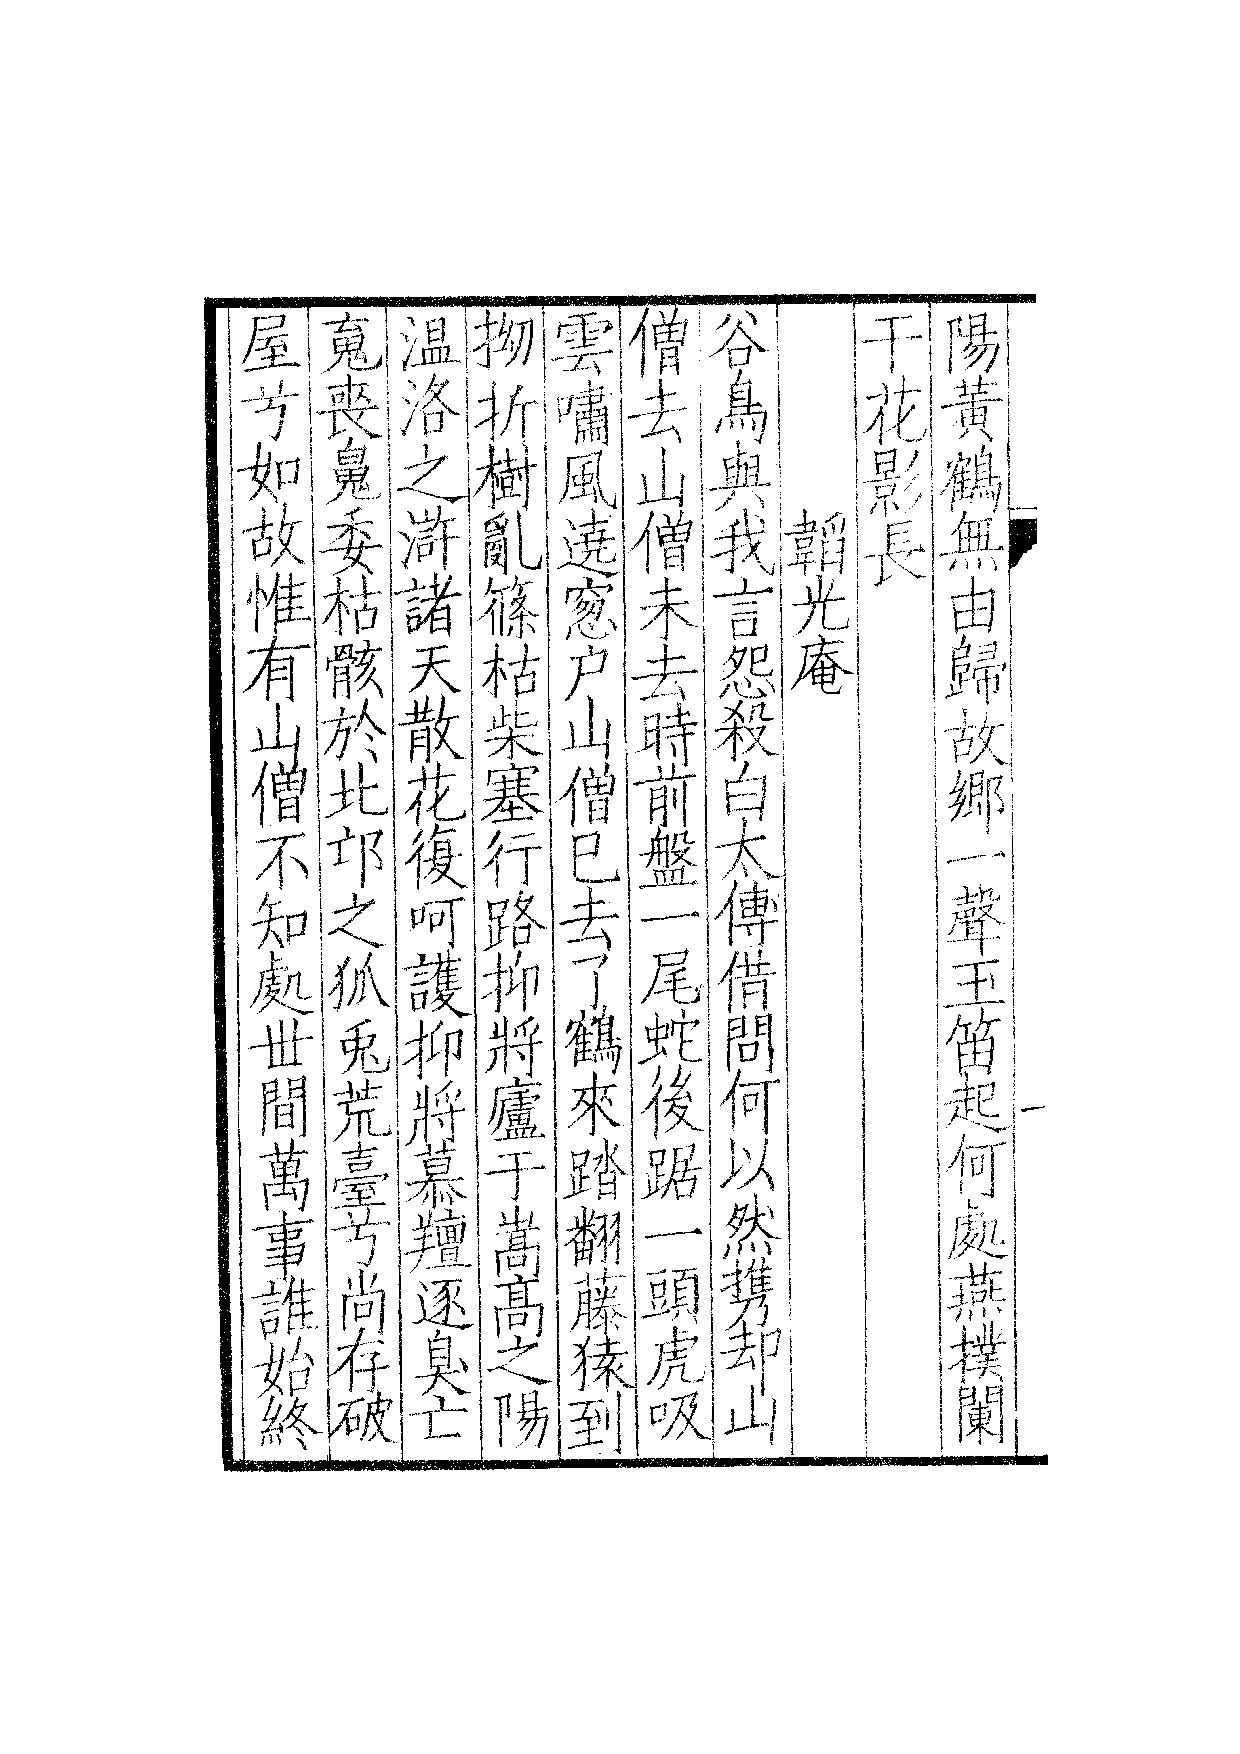 陽黃鶴無由歸故鄉一聲玉笛起何處燕撲闌
干花影長
韜光庵
谷鳥與我言怨殺白太傅借問何以然携却山
僧去山僧未去時前盤一尾蛇後踞一頭虎吸
雲嘯風遶窓户山僧已去了鶴來踏翻藤猿到
拗折樹亂篠枯柴塞行路抑將廬于嵩高之陽
温洛之滸諸天散花復呵護抑將慕羶逐臭亡
䰟喪魄委枯骸於北邙之狐兎荒臺兮尚存破
屋兮如故惟有山僧不知處丗間萬事誰始終